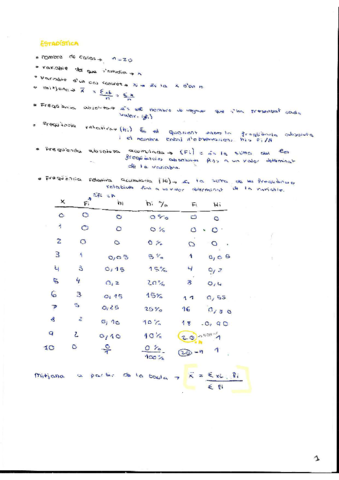 ESTADÍSTICA
• nombre de casos → n=20
• variable de que s'estudia → x
• mitjana → x̄ = Σxi/n = Σx/n
• Freqüència absoluta és el nombre de vegades que s'ha presentat cada valor. (fi)
• Freqüència relativa (hi) És el quocient entre la freqüència absoluta i el nombre total d'observacions. hi = Fi/n
• Freqüència absoluta acumulada → (Fi) = és la suma de les freqüències absolutes fins a un valor determinat de la variable
• Freqüència relativa acumulada (Hi) → És la suma de les freqüències relatives fins a un valor determinat de la variable.
x Fi hi hi % Fi Hi
0 0 0 0% 0 0
1 0 0 0% 0 0
2 0 0 0% 0 0
3 1 0,05 5% 1 0,05
4 3 0,15 15% 4 0,2
5 4 0,2 20% 8 0,4
6 3 0,15 15% 11 0,55
7 5 0,25 25% 16 0,80
8 2 0,10 10% 18 0,90
9 2 0,10 10% 20 1
10 0 0 0% 20=n 1
100%
mitjana a partir de la taula → x̄ = Σ xi · fi / Σ fi
1